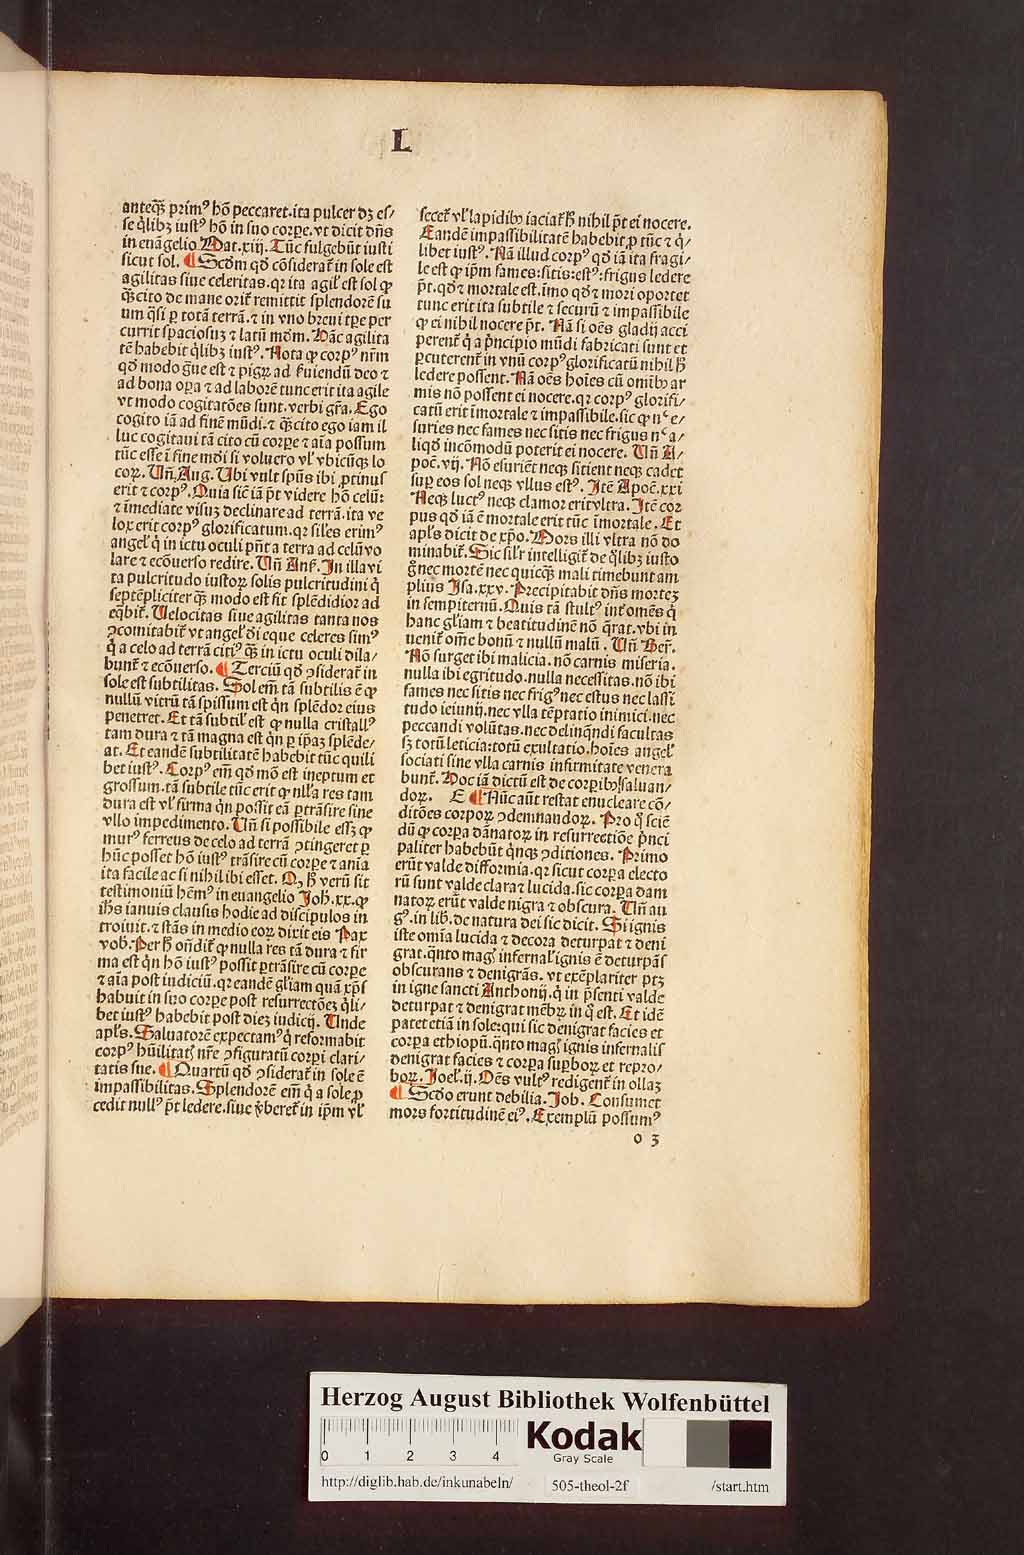 L
anteq̄ꝫ prim⁹ hō peccaret. ita pulcer dꝫ es/
se q̄libꝫ iust⁹ hō in suo corpe. vt dicit dn̄s
in euāgelio Mat. xiij. Tūc fulgebūt iusti
sicut sol. ¶ Scdm qd̄ cōsiderat̄ in sole est
agilitas siue celeritas. qr ita agil' est sol ꝙ
q̄ꝫcito de mane orit̄ remittit splendorē su
um q̄si ꝑ totā terrā. ⁊ in vno breui tꝑe per
currit spaciosuꝫ ⁊ latū mōm. Hāc agilita
tē habebit q̄libꝫ iust⁹. Nota ꝙ corp⁹ nr̄m
qd̄ modo ḡue est ⁊ pigꝝ ad ẜuiendū deo ⁊
ad bona oꝑa ⁊ ad laborē tunc erit ita agile
vt modo cogitatōes sunt. verbi gr̄a. Ego
cogito iā ad finē mūdi. ⁊ q̄ꝫ cito ego iam il
luc cogitaui tā cito cū corpe ⁊ aīa possum
tūc esse ī fine mōi si voluero vl' vbicūqꝫ lo
coꝝ. Vn̄ Aug. Vbi vult spūs ibi ꝓtinus
erit ⁊ corp⁹. Quia sic̄ iā pt̄ videre hō celū:
⁊ īmediate visuꝫ declinare ad terrā. ita ve
lox erit corp⁹ glorificatum. qr sil'es erim⁹
angel' q̄ in ictu oculi pn̄t a terra ad celū vo
lare ⁊ ecōuerso redire. Vn̄ Anẜ. In illa vi
ta pulcritudo iustoꝝ solis pulcritudini q̄
septēpliciter q̄ꝫ modo est sit splēdidior ad
eq̄bit̄. Velocitas siue agilitas tanta nos
ꝯcomitabit̄ vt angel' dī eque celeres sim⁹
q̄ a celo ad terrā citi⁹ q̄ꝫ in ictu oculi dila/
bunt̄ ⁊ ecōuerso. ¶ Terciū qd̄ ꝯsiderat̄ in
sole est subtilitas. Sol em̄ tā subtilis ē ꝙ
nullū vitrū tā spissum est q̄n splēdor eius
penetret. Et tā subtil' est ꝙ nulla cristall⁹
tam dura ⁊ tā magna est q̄n ꝑ ip̄aꝫ splēde/
at. Et eandē subtilitatē habebit tūc quili
bet iust⁹. Corp⁹ em̄ qd̄ mō est ineptum et
grossum. tā subtile tūc erit ꝙ nll'a res tam
dura est vl' firma q̄n possit eā ꝑtrāsire sine
vllo impedimento. Vn̄ si possibile essꝫ ꝙ
mur⁹ ferreus de celo ad terrā ꝯtingeret ꝑ
hūc posset hō iust⁹ trāsire cū corpe ⁊ anīa
ita facile ac si nihil ibi esset. Qꝫ h̄ verū sit
testimoniū hēm⁹ in euangelio Joh̄. xx. ꝙ
ih̄s ianuis clausis hodie ad discipulos in
troiuit. ⁊ stās in medio eoꝝ dixit eis Pax
vob̄. Per h̄ on̄dit̄ ꝙ nulla res tā dura ⁊ fir
ma est q̄n hō iust⁹ possit ꝑtrāsire cū corpe
⁊ aīa post iudiciū. qr eandē gl'iam quā xp̄s
habuit in suo corpe post resurrectōeꝫ q̄li/
bet iust⁹ habebit post dieꝫ iudicij. Vnde
apl's. Saluatorē expectam⁹ q̄ reformabit
corp⁹ hūilitatꝭ nr̄e ꝯfiguratū corpi clari/
tatis sue. ¶ Quartū qd̄ ꝯsiderat̄ in sole ē
impassibilitas. Splendorē em̄ q̄ a sole ꝓ
cedit null⁹ pt̄ ledere. siue v̄beret̄ in ip̄m vl'
secet̄ vl' lapidibꝰ iaciat̄ h̄ nihil pt̄ ei nocere.
Eandē impassibilitatē habebit ꝑ tūc ⁊ q̄/
libet iust⁹. Nā illud corp⁹ qd̄ iā ita fragi/
le est ꝙ ip̄m fames: sitis: est⁹: frigus ledere
pt̄. qd̄ ⁊ mortale est. īmo qd̄ ⁊ mori oportet
tunc erit ita subtile ⁊ securū ⁊ impassibile
ꝙ ei nihil nocere pt̄. Nā si oēs gladij acci
perent̄ q̄ a pͥncipio mūdi fabricati sunt et
ꝑcuterent̄ in vnū corp⁹ glorificatū nihil h̄
ledere possent. Nā oēs hoīes cū om̄ibꝰ ar
mis nō possent ei nocere. qr corp⁹ glorifi/
catū erit īmortale ⁊ impassibile. sic ꝙ nᶜ e/
suries nec fames nec sitis nec frigus nᶜ a/
liqd̄ incōmodū poterit ei nocere. Vn̄ A/
poc̄. vij. Nō esuriēt neqꝫ sitient neqꝫ cadet
suꝑ eos sol neqꝫ vllus est⁹. Itē Apoc̄. xxi
Neqꝫ luct⁹ neqꝫ clamor erit vltra. Itē cor
pus qd̄ iā ē mortale erit tūc īmortale. Et
apl's dicit de xp̄o. Mors illi vltra nō do
minabit̄. Sic sil'r intelligit̄ de q̄libꝫ iusto
g̊ nec mortē nec quicq̄ꝫ mali timebunt am
plius Isa. xxv. Precipitabit dn̄s morteꝫ
in sempiternū. Quis tā stult⁹ int̄ omēs q̄
hanc gl'iam ⁊ beatitudinē nō q̄rat. vbi in
uenit̄ om̄e bonū ⁊ nullū malū. Vn̄ Ber̄.
Nō surget ibi malicia. nō carnis miseria.
nulla ibi egritudo. nulla necessitas. nō ibi
fames nec sitis nec frig⁹ nec estus nec lassi
tudo ieiunij. nec vlla tēptatio inimici. nec
peccandi volūtas. nec delinqn̄di facultas
sꝫ totū leticia: totū exultatio. hoīes angel'
sociati sine vlla carnis infirmitate venera
bunt̄. Hoc iā dictū est de corpibꝰ saluan/
doꝝ. E ¶ Nūc aūt restat enucleare cō/
ditōes corpoꝝ ꝯdemnandoꝝ. Pro q̊ sciē
dū ꝙ corpa dānatoꝝ in resurrectiōe pͥnci
paliter habebūt qͥnqꝫ ꝯditiones. Primo
erūt valde difformia. qr sicut corpa electo
rū sunt valde clara ⁊ lucida. sic corpa dam
natoꝝ erūt valde nigra ⁊ obscura. Vn̄ au
g⁹. in lib̄. de natura dei sic dicit. Si ignis
iste om̄ia lucida ⁊ decora deturpat ⁊ deni
grat. qn̄to magꝭ infernal' ignis ē deturpās
obscurans ⁊ denigrās. vt exēplariter ptꝫ
in igne sancti Anthonij. q̄ in pn̄senti valde
deturpat ⁊ denigrat mēbꝝ in q̊ est. Et idē
patet etiā in sole: qui sic denigrat facies et
corpa ethiopū. qn̄to magꝭ ignis infernalis
denigrat facies ⁊ corpa suꝑboꝝ et repro/
boꝝ. Joel'. ij. Oēs vult⁹ redigent̄ in ollaꝫ
¶ Scdo erunt debilia. Job. Consumet
mors fortitudinē ei⁹. Exemplū possum⁹
o 3
Herzog August Bibliothek Wolfenbüttel
0 1 2 3 4
Kodak
Gray Scale
http://diglib.hab.de/inkunabeln/ 505-theol-2f /start.htm